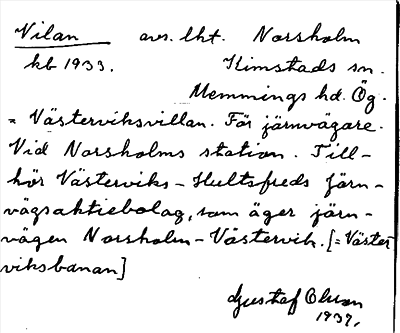 Vilan avs. lht. Norsholm
kb 1933. Kimstads sn.
Memmings hd. Ög.
= Västerviksvillan. För järnvägare.
Vid Norsholms station. Till-
hör Västerviks-Hultsfreds Järn-
vägsaktiebolag, som äger järn-
vägen Norsholm-Västervik. [= Väster
viksbanan]
Gustaf Olson
1937.